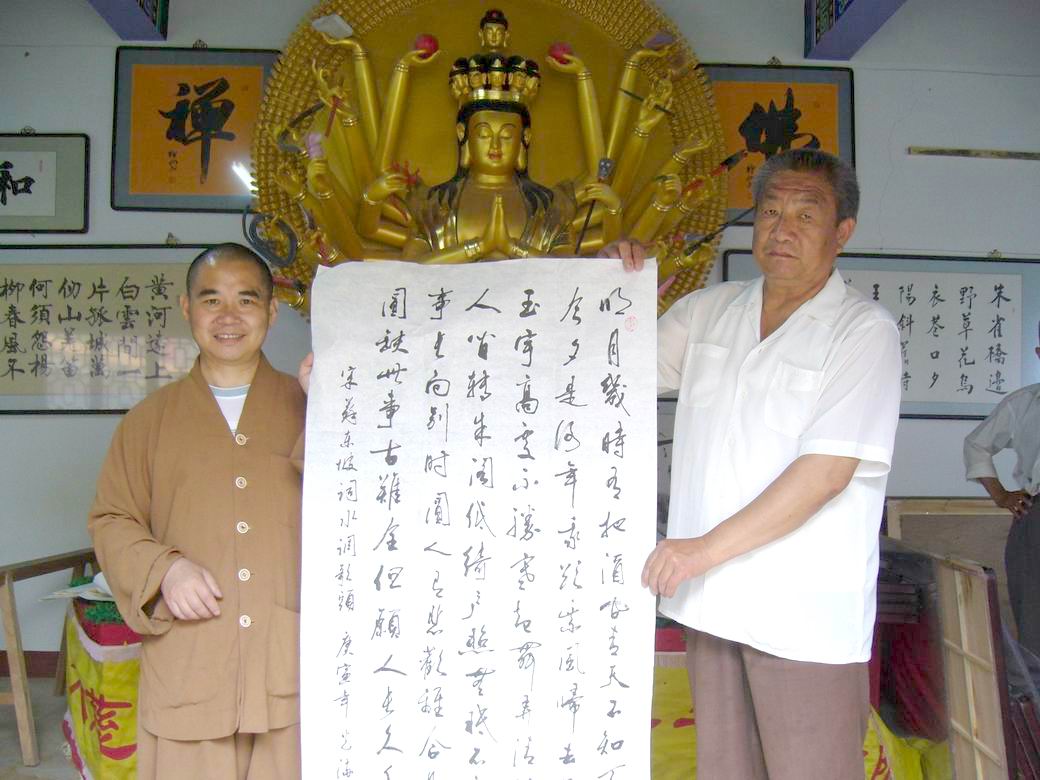 禅
佛
和
黄河远上
白雲間一
片孤城萬
仞山羌笛
何須怨楊
柳春風不
朱雀橋邊
野草花烏
衣巷口夕
陽斜
明月幾時有把酒问青天不知
今夕是何年我欲乘風帰去
玉宇高處不勝寒起舞弄清
人皆轉朱阁低綺户照無眠不
事长向别时圓人有悲歡離合
圆缺此事古難全但願人长久
宋蘇東坡词水调歌頭 庚寅年